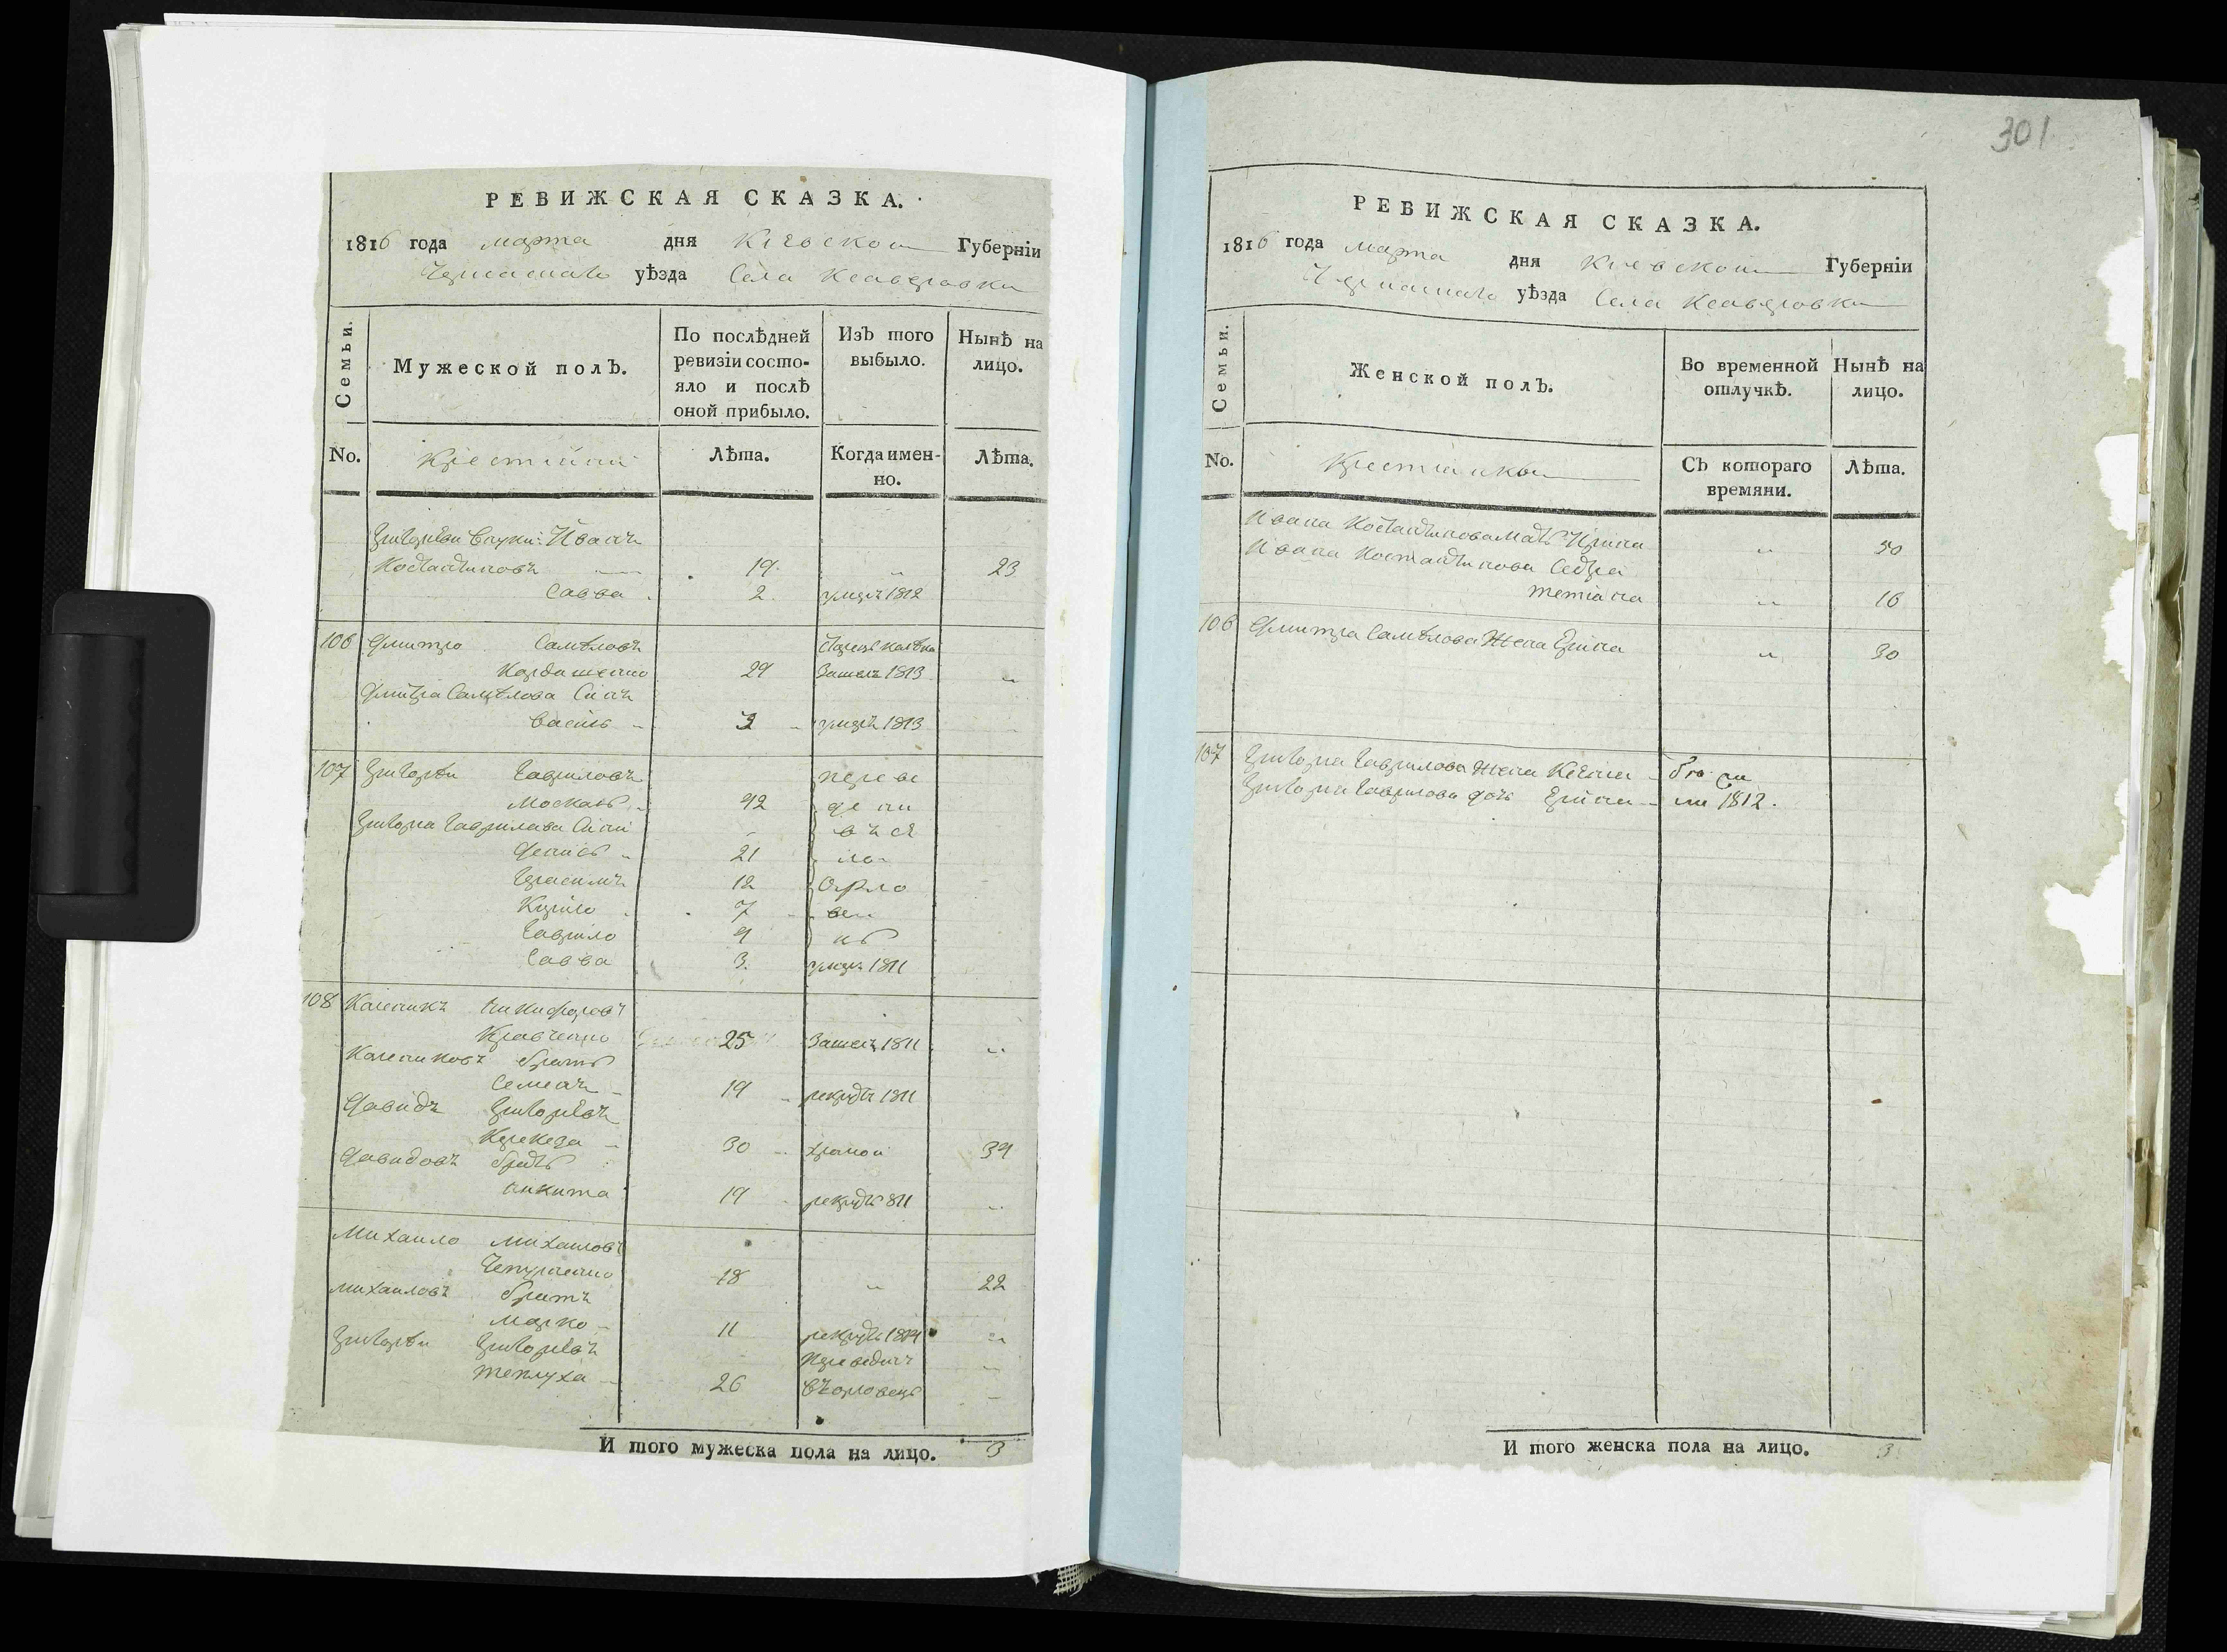 РЕВИЖСКАЯ СКАЗКА.
1816 года марта дня Кіевской Губерніи
уѣзда Села Ксаверовки
Семьи.
Мужеской полъ.
По послѣдней ревизіи состо-
яло и послѣ
оной прибыло.
Изъ того
выбыло.
Нынѣ на
лицо.
No.
Крестяни
Лѣта.
Когда имен-
но.
Лѣта.
Григорѣи внуки: Иванъ
Костантиновъ 19. 23
Савва 2. умеръ 1812
106 Дмитро Самѣловъ
Кардашенко 29 Зашелъ 1813
Дмитра Самѣлова Синъ
Василь 3 умеръ 1813
107 Григорѣи Гавриловъ пере ве
Москаль 42 де ни
Григориа Гаврилова Сини въ се
Денисъ 21 ло
Герасимъ 12 Орло
Кирило 7 вец
Гаврило 4 къ
Савва 3. умеръ 1811
108 Каленикъ Никифоровъ
Кравченко 25 Зашелъ 1811
Калениковъ братъ
Семенъ 19 рекрутъ 1811
Давидъ Григорѣвъ
30 хромой 34
Давидовъ братъ
Никита 19 рекрутъ 811
Михаило Михаиловъ
18 22
Михаиловъ братъ
Марко 11 рекрутъ 1814
Григорѣи Григорѣвъ Переведенъ
Теплуха 26 въ Орловецъ
И того мужеска пола на лицо. 3
301
РЕВИЖСКАЯ СКАЗКА.
1816 года марта дня Кіевской Губерніи
уѣзда Села Ксаверовки
Семьи.
Женской полъ.
Во временной
отлучкѣ.
Нынѣ на
лицо.
No.
Крестіанки
Съ котораго
времяни.
Лѣта.
Ивана Костантинова Мать Ирина 50
Ивана Костантинова Сестра
Тетіана 16
106 Дмитра Самѣлова Жена Ирина 30
107 Григориа Гаврилова Жена
Григориа Гаврилова дочь 1812.
И того женска пола на лицо. 3